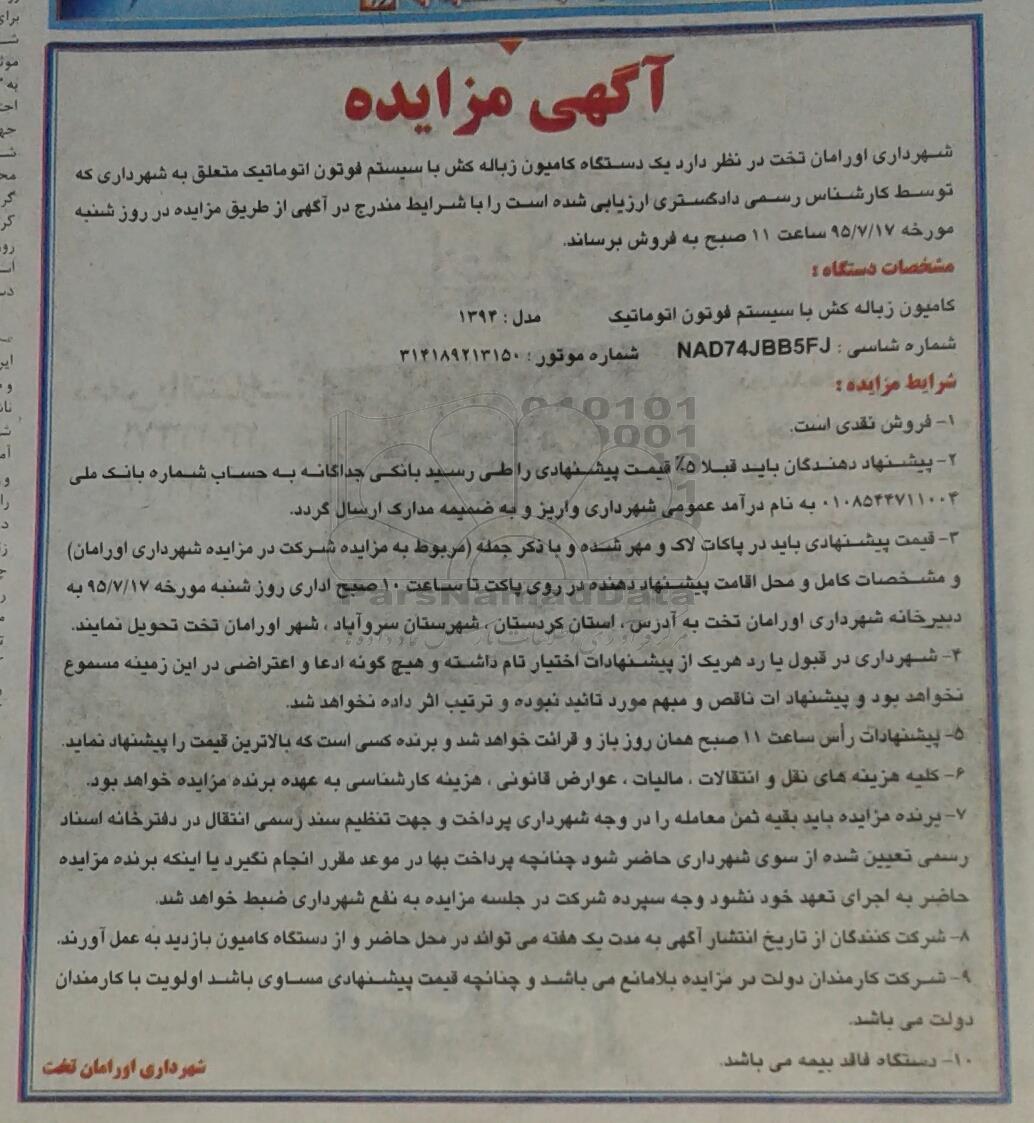 آگهی مزایده
شهرداری اورامان تخت در نظر دارد یک دستگاه کامیون زباله کش با سیستم فوتون اتوماتیک متعلق به شهرداری که
توسط کارشناس رسمی دادگستری ارزیابی شده است را با شرایط مندرج در آگهی از طریق مزایده در روز شنبه
مورخه ۹۵/۷/۱۷ ساعت ۱۱ صبح به فروش برساند.
مشخصات دستگاه :
کامیون زباله کش با سیستم فوتون اتوماتیک مدل : ۱۳۹۴
شماره شاسی : NAD74JBB5FJ شماره موتور : ۳۱۴۱۸۹۲۱۳۱۵۰
شرایط مزایده :
۱- فروش نقدی است.
۲- پیشنهاد دهندگان باید قبلا ۵٪ قیمت پیشنهادی را طی رسید بانکی جداگانه به حساب شماره بانک ملی
۰۱۰۸۵۴۴۷۱۱۰۰۴ به نام درآمد عمومی شهرداری واریز و به ضمیمه مدارک ارسال گردد.
۳- قیمت پیشنهادی باید در پاکات لاک و مهر شده و با ذکر جمله (مربوط به مزایده شرکت در مزایده شهرداری اورامان)
و مشخصات کامل و محل اقامت پیشنهاد دهنده در روی پاکت تا ساعت ۱۰ صبح اداری روز شنبه مورخه ۹۵/۷/۱۷ به
دبیرخانه شهرداری اورامان تخت به آدرس ، استان کردستان ، شهرستان سروآباد ، شهر اورامان تخت تحویل نمایند.
۴- شهرداری در قبول یا رد هریک از پیشنهادات اختیار تام داشته و هیچ گونه ادعا و اعتراضی در این زمینه مسموع
نخواهد بود و پیشنهاد ات ناقص و مبهم مورد تائید نبوده و ترتیب اثر داده نخواهد شد.
۵- پیشنهادات رأس ساعت ۱۱ صبح همان روز باز و قرائت خواهد شد و برنده کسی است که بالاترین قیمت را پیشنهاد نماید.
۶- کلیه هزینه های نقل و انتقالات ، مالیات ، عوارض قانونی ، هزینه کارشناسی به عهده برنده مزایده خواهد بود.
۷- برنده مزایده باید بقیه ثمن معامله را در وجه شهرداری پرداخت و جهت تنظیم سند رسمی انتقال در دفترخانه اسناد
رسمی تعیین شده از سوی شهرداری حاضر شود چنانچه پرداخت بها در موعد مقرر انجام نگیرد یا اینکه برنده مزایده
حاضر به اجرای تعهد خود نشود وجه سپرده شرکت در جلسه مزایده به نفع شهرداری ضبط خواهد شد.
۸- شرکت کنندگان از تاریخ انتشار آگهی به مدت یک هفته می تواند در محل حاضر و از دستگاه کامیون بازدید به عمل آورند.
۹- شرکت کارمندان دولت در مزایده بلامانع می باشد و چنانچه قیمت پیشنهادی مساوی باشد اولویت با کارمندان
دولت می باشد.
۱۰- دستگاه فاقد بیمه می باشد.
شهرداری اورامان تخت
ParsNamadData